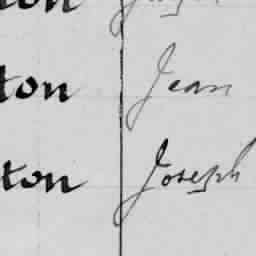 ton Jean
ton Joseph